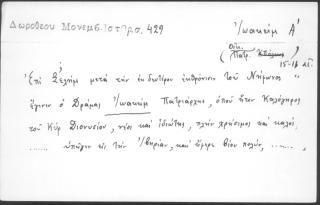 Δωροθέου Μονεμβ. Ιστορ. σ. 429
Ἰωακεὶμ Α΄
Οἰκ.
Πατρ.
15-16 αἰ.
Ἐπὶ Σελὴμ μετὰ τὴν ἐκ δευτέρου ἐκθρόνισιν τοῦ Νήφωνος "
ἔγινεν ὁ Δράμας Ἰωακεὶμ Πατριάρχης, ὁποῦ ἦταν Καλόγηρος
τοῦ Κὺρ Διονυσίου, νέος καὶ ἰδιώτης, πλὴν χρήσιμος καὶ καλός,
....... ὑπῆγεν εἰς τὴν Ἰβηρίαν, καὶ ἤφερε βίον πολύν, .......